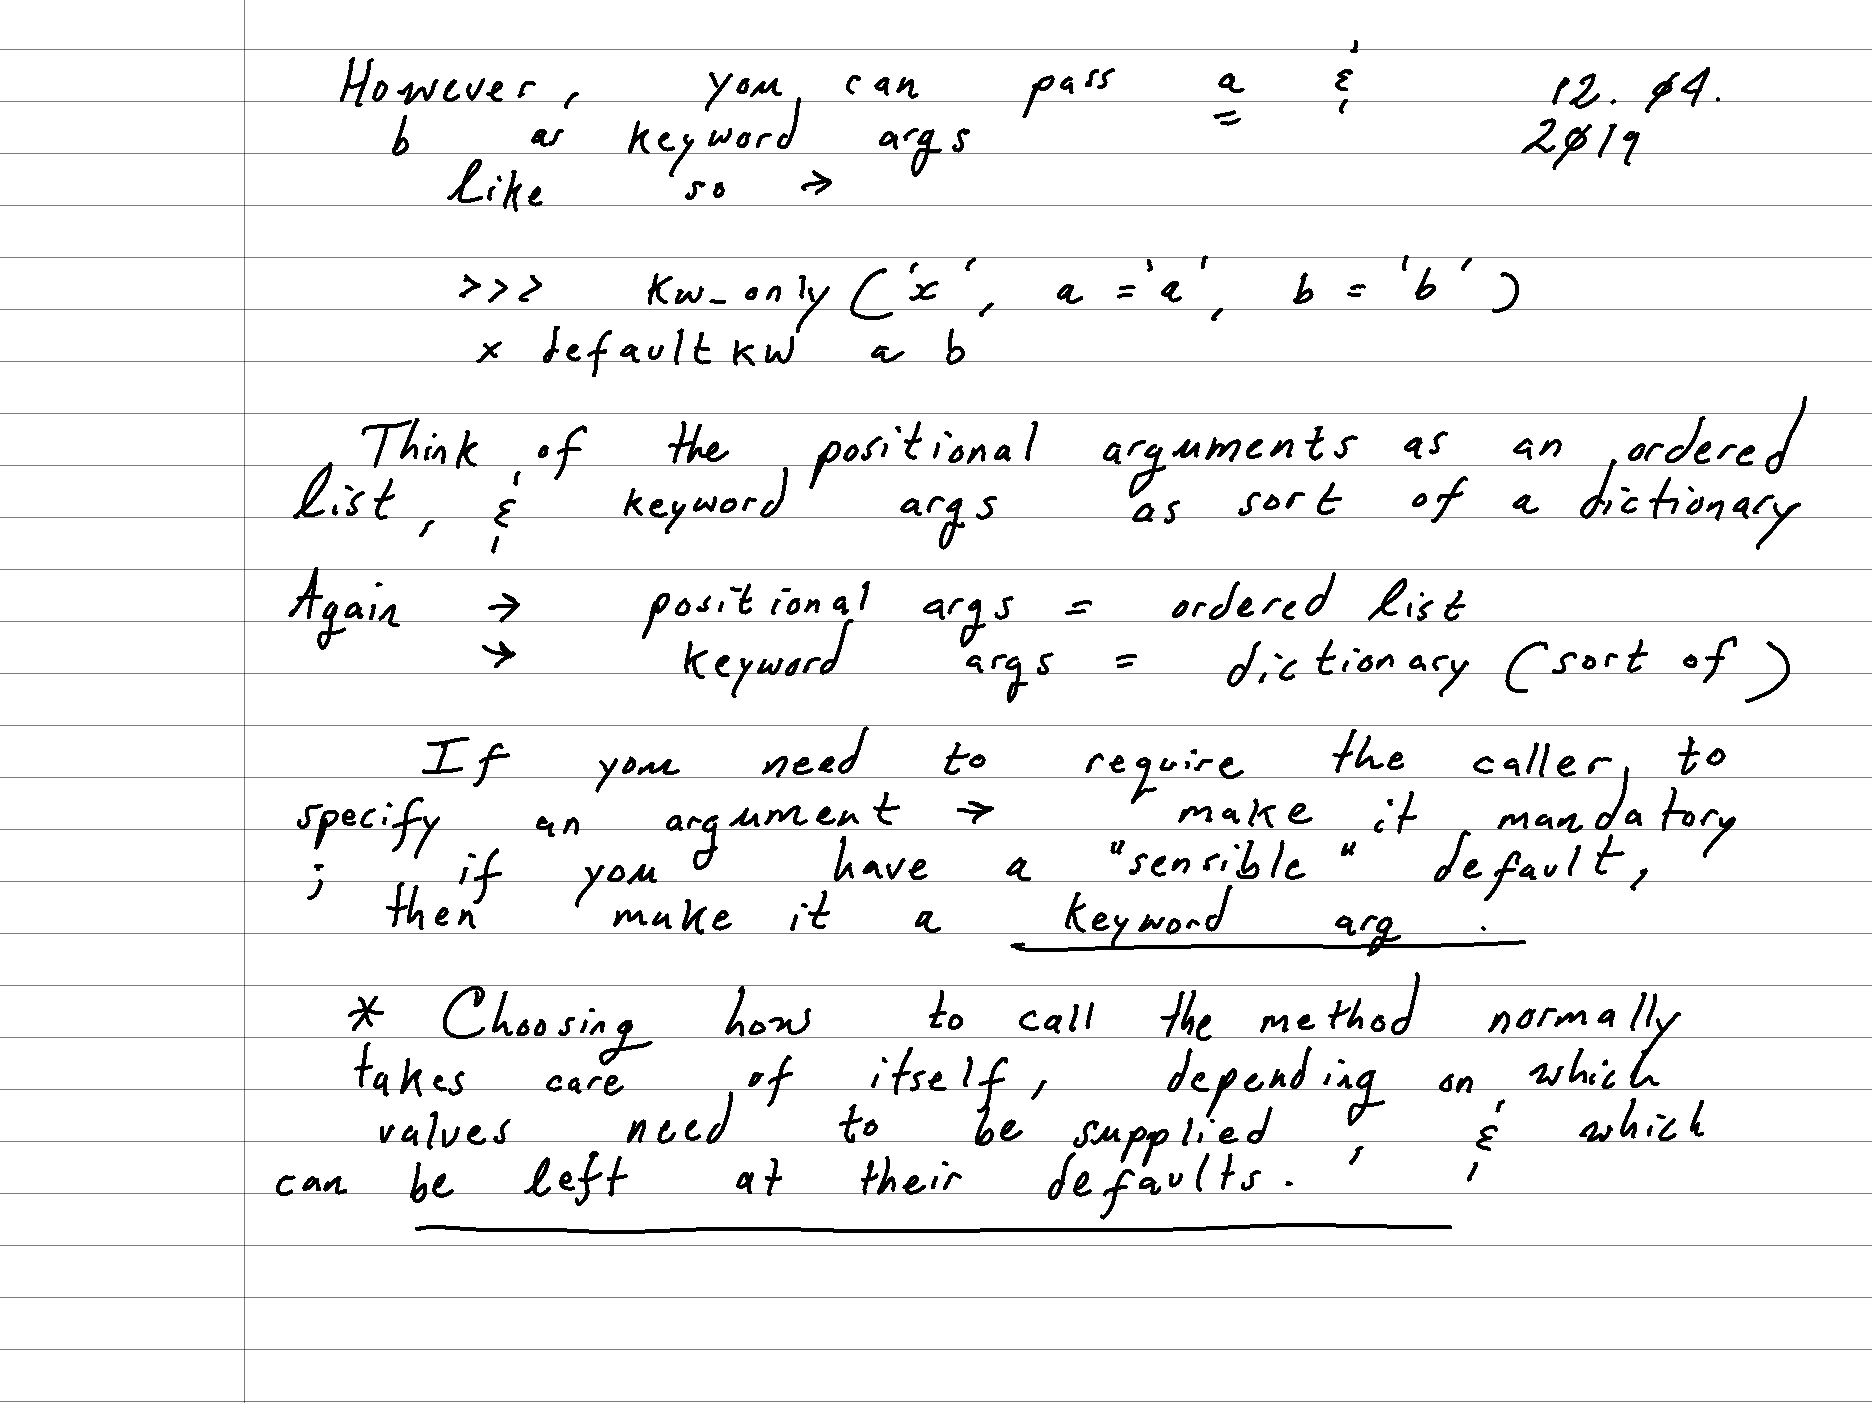 However, you can pass a & 12. 04.
b as keyword args 2019
like so →
>>> kw_only('x', a='a', b='b')
x defaultkw a b
Think of the positional arguments as an ordered
list, & keyword args as sort of a dictionary
Again → positional args = ordered list
→ keyword args = dictionary (sort of)
If you need to require the caller to
specify an argument → make it mandatory
; if you have a "sensible" default,
then make it a keyword arg.
* Choosing how to call the method normally
takes care of itself, depending on which
values need to be supplied, & which
can be left at their defaults.